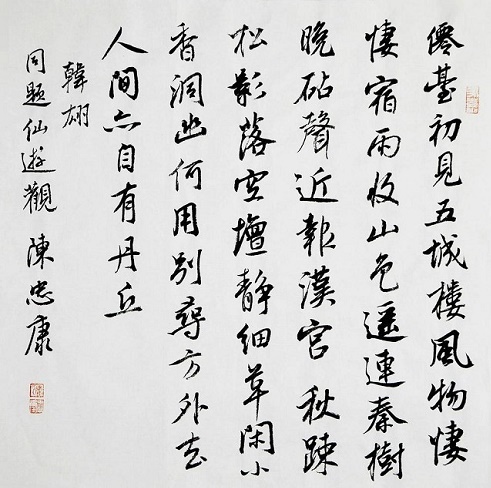 僊臺初見五城樓風物悽
悽宿雨收山色遥連秦樹
晚砧聲近報漢宮秋疎
松影落空壇靜細草閑小
香洞幽何用別尋方外去
人間亦自有丹丘
韓翃
同題仙遊觀 陳忠康